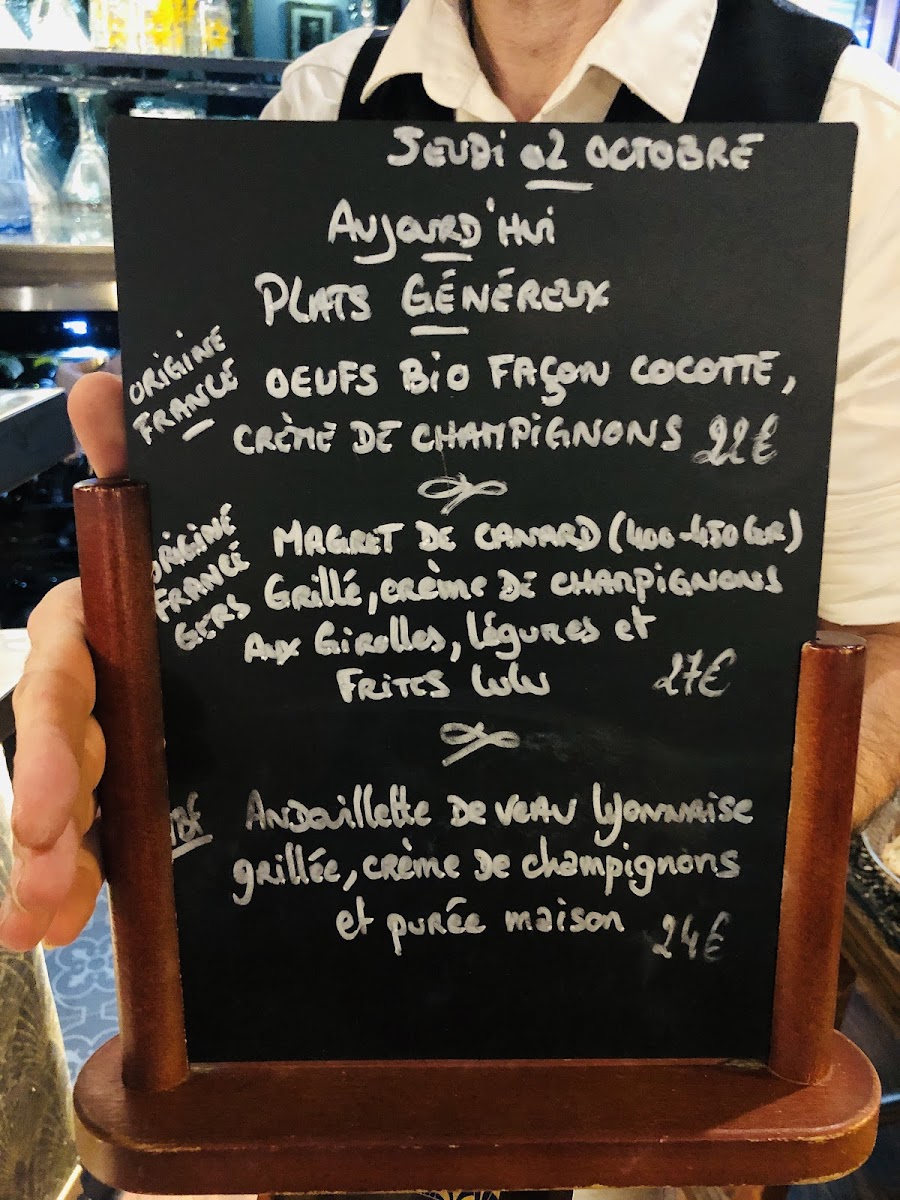 JEUDI 02 OCTOBRE
AUJOURD'HUI
PLATS GÉNÉREUX
ORIGINE
FRANCE
OEUFS BIO FAÇON COCOTTE,
CRÈME DE CHAMPIGNONS 22€
ORIGINE
FRANCE
GERS
MAGRET DE CANARD (400-450 GR)
Grillé, crème DE CHAMPIGNONS
AUX Girolles, légumes et
FRITES LULU 27€
Andouillette DE VEAU lyonnaise
grillée, crème de champignons
et purée maison 24€